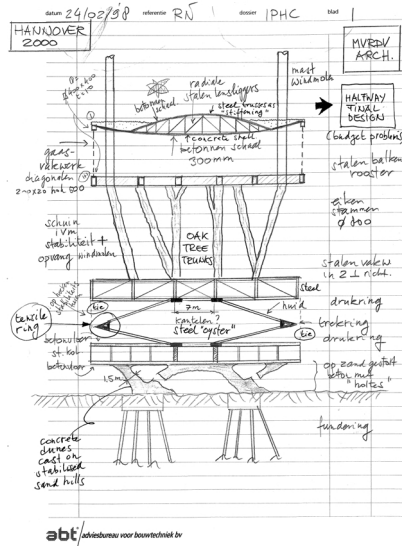 datum 24/02/98 referentie RN dossier IPHC blad 1
HANNOVER
2000
MVRDV
ARCH.
HALFWAY
FINAL
DESIGN
(budget problems)
mast
windmolens
radiale
stalen lensliggers
betonnen
schaal
steel trusses as
"stiffening"
concrete shell
betonnen schaal
300mm
gaas-
vakwerk
diagonalen
stalen balken
rooster
eiken
stammen
ø 800
schuin
ivm
stabiliteit +
opvang windmolen
OAK
TREE
TRUNKS
stalen vakw
in 2 ⊥ richt.
steel
drukring
7m
huid
tensile
ring
tie
kantelen?
steel "oyster"
trekring
drukring
tie
betonvloer
st. kol
betonvloer
1,5m
op zand gestort
beton met
"holtes"
fundering
concrete
dunes
cast on
stabilised
sand hills
abt adviesbureau voor bouwtechniek bv